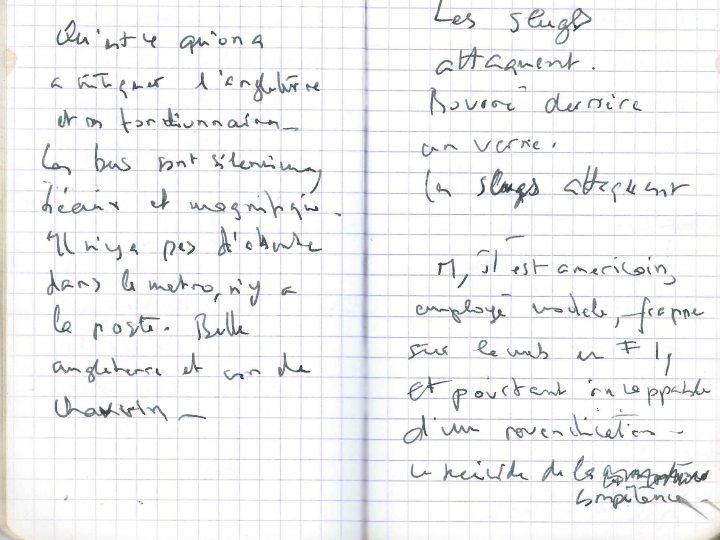 Qu'est ce qu'on a
a critiquer l'angleterre
et ses fonctionnaires
Les bus sont silencieux,
et magnifique.
Il n'y a pas d'
dans le metro, n'y a
la poste. Belle
angleterre et con de
chauvin
Les slugs
attaquent.
Bourré derrière
un verre.
Les slugs attaquent
M, il est americain,
employé modele, frappe
sur le web en F1,
Et pourtant incappable
d'une revendication
le suicide de la
compétence